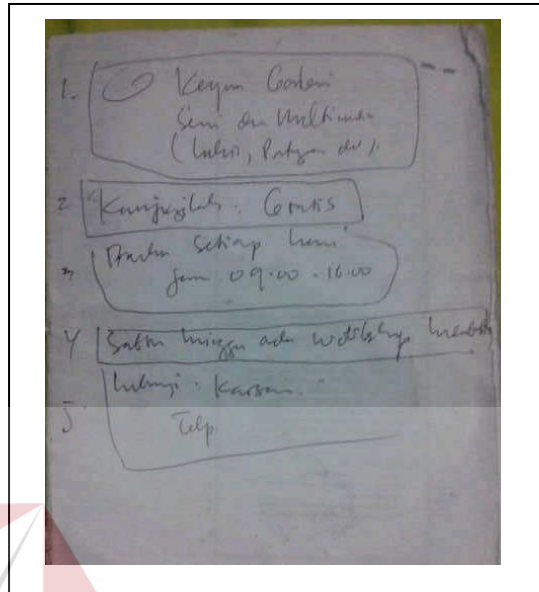 1. Keyan Galeri
Seni dan Multimedia
(Lukis, Patung dll).
2 Kunjungilah. Gratis
3 Buka Setiap hari
Jam 09.00 - 16.00
4 Sabtu minggu ada workshop
5 hubungi : Karsam.
Telp